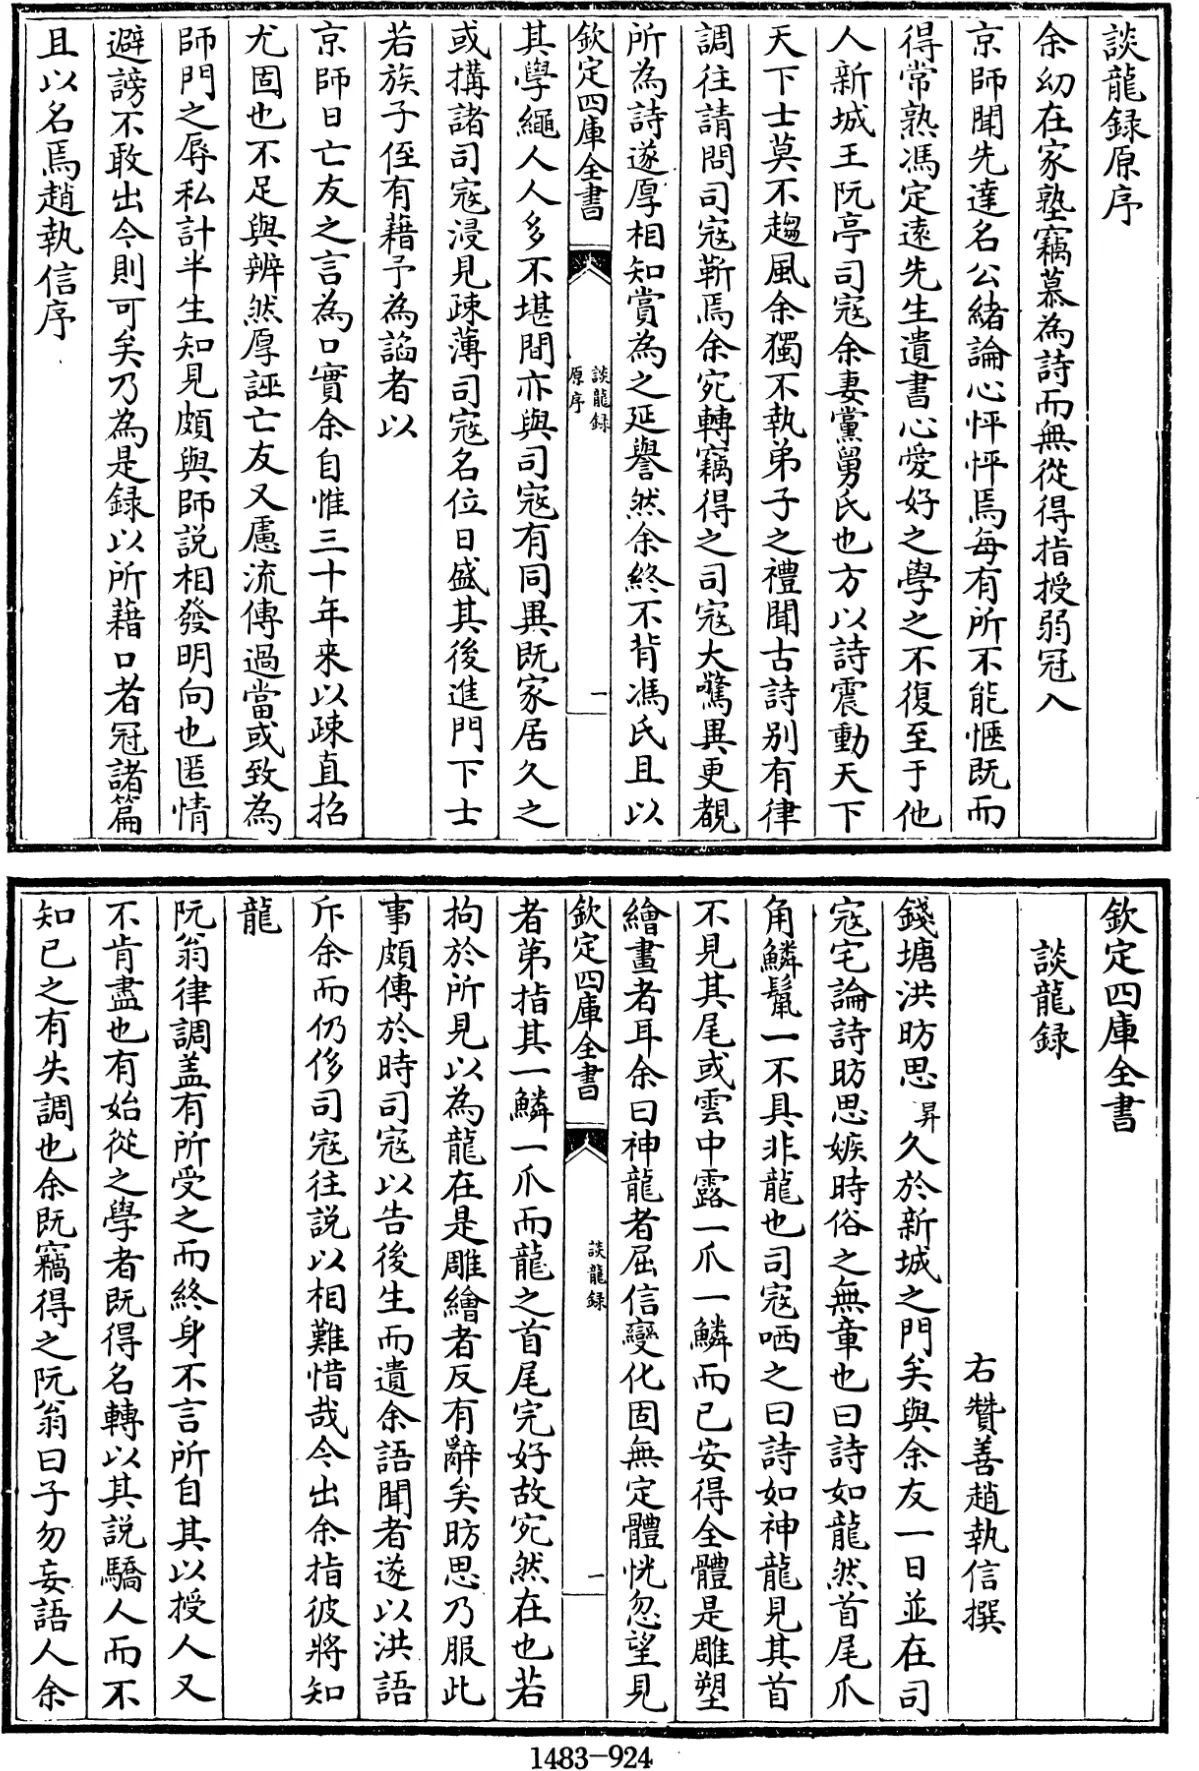 談龍録原序
余幼在家塾竊慕為詩而無從得指授弱冠入
京師聞先達名公緒論心怦怦焉每有所不能愜既而
得常熟馮定遠先生遺書心愛好之學之不復至于他
人新城王阮亭司寇余妻黨舅氏也方以詩震動天下
天下士莫不趨風余獨不執弟子之禮聞古詩别有律
調往請問司寇靳焉余宛轉竊得之司寇大驚異更覩
所為詩遂厚相知賞為之延譽然余終不背馮氏且以
欽定四庫全書
談龍録
原序
一
其學繩人人多不堪間亦與司寇有同異既家居久之
或搆諸司寇浸見疎薄司寇名位日盛其後進門下士
若族子侄有藉予為諂者以
京師日亡友之言為口實余自惟三十年来以疎直招
尤固也不足與辨然厚誣亡友又慮流傳過當或致為
師門之辱私計半生知見頗與師説相發明向也匿情
避謗不敢出今則可矣乃為是録以所藉口者冠諸篇
且以名焉趙執信序
欽定四庫全書
談龍録
右贊善趙執信撰
錢塘洪昉思昇久於新城之門矣與余友一日並在司
寇宅論詩昉思嫉時俗之無章也曰詩如龍然首尾爪
角鱗鬣一不具非龍也司寇哂之曰詩如神龍見其首
不見其尾或雲中露一爪一鱗而已安得全體是雕塑
繪畫者耳余曰神龍者屈信變化固無定體恍忽望見
欽定四庫全書
談龍録
一
者第指其一鱗一爪而龍之首尾完好故宛然在也若
拘於所見以為龍在是雕繪者反有辭矣昉思乃服此
事頗傳於時司寇以告後生而遺余語聞者遂以洪語
斥余而仍侈司寇往説以相難惜哉今出余指彼將知
龍
阮翁律調盖有所受之而終身不言所自其以授人又
不肯盡也有始從之學者既得名轉以其説驕人而不
知已之有失調也余既竊得之阮翁曰子勿妄語人余
1483-924